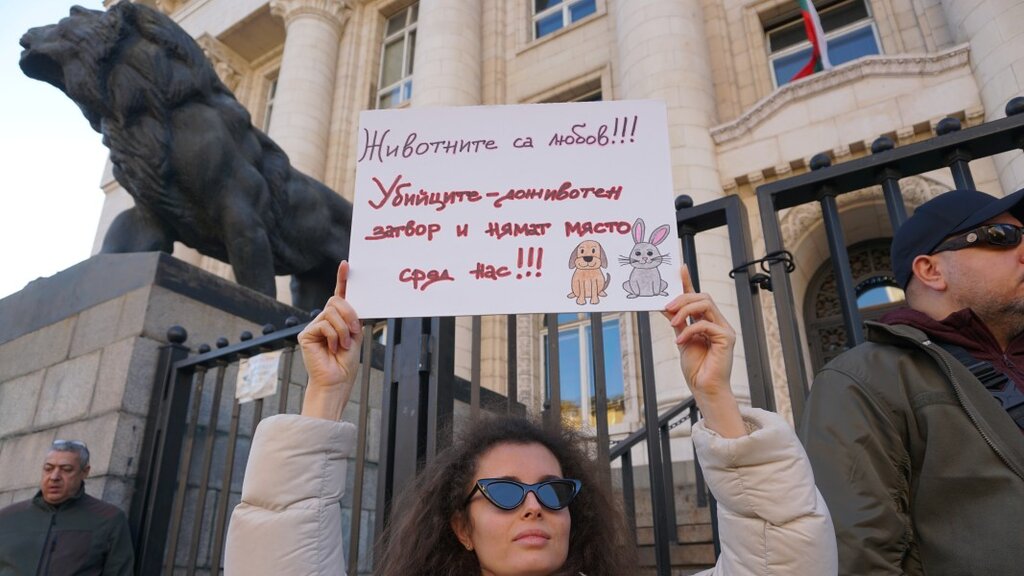 Животните са любов!!!
Убийците-доживотен
затвор и нямат място
сред нас!!!